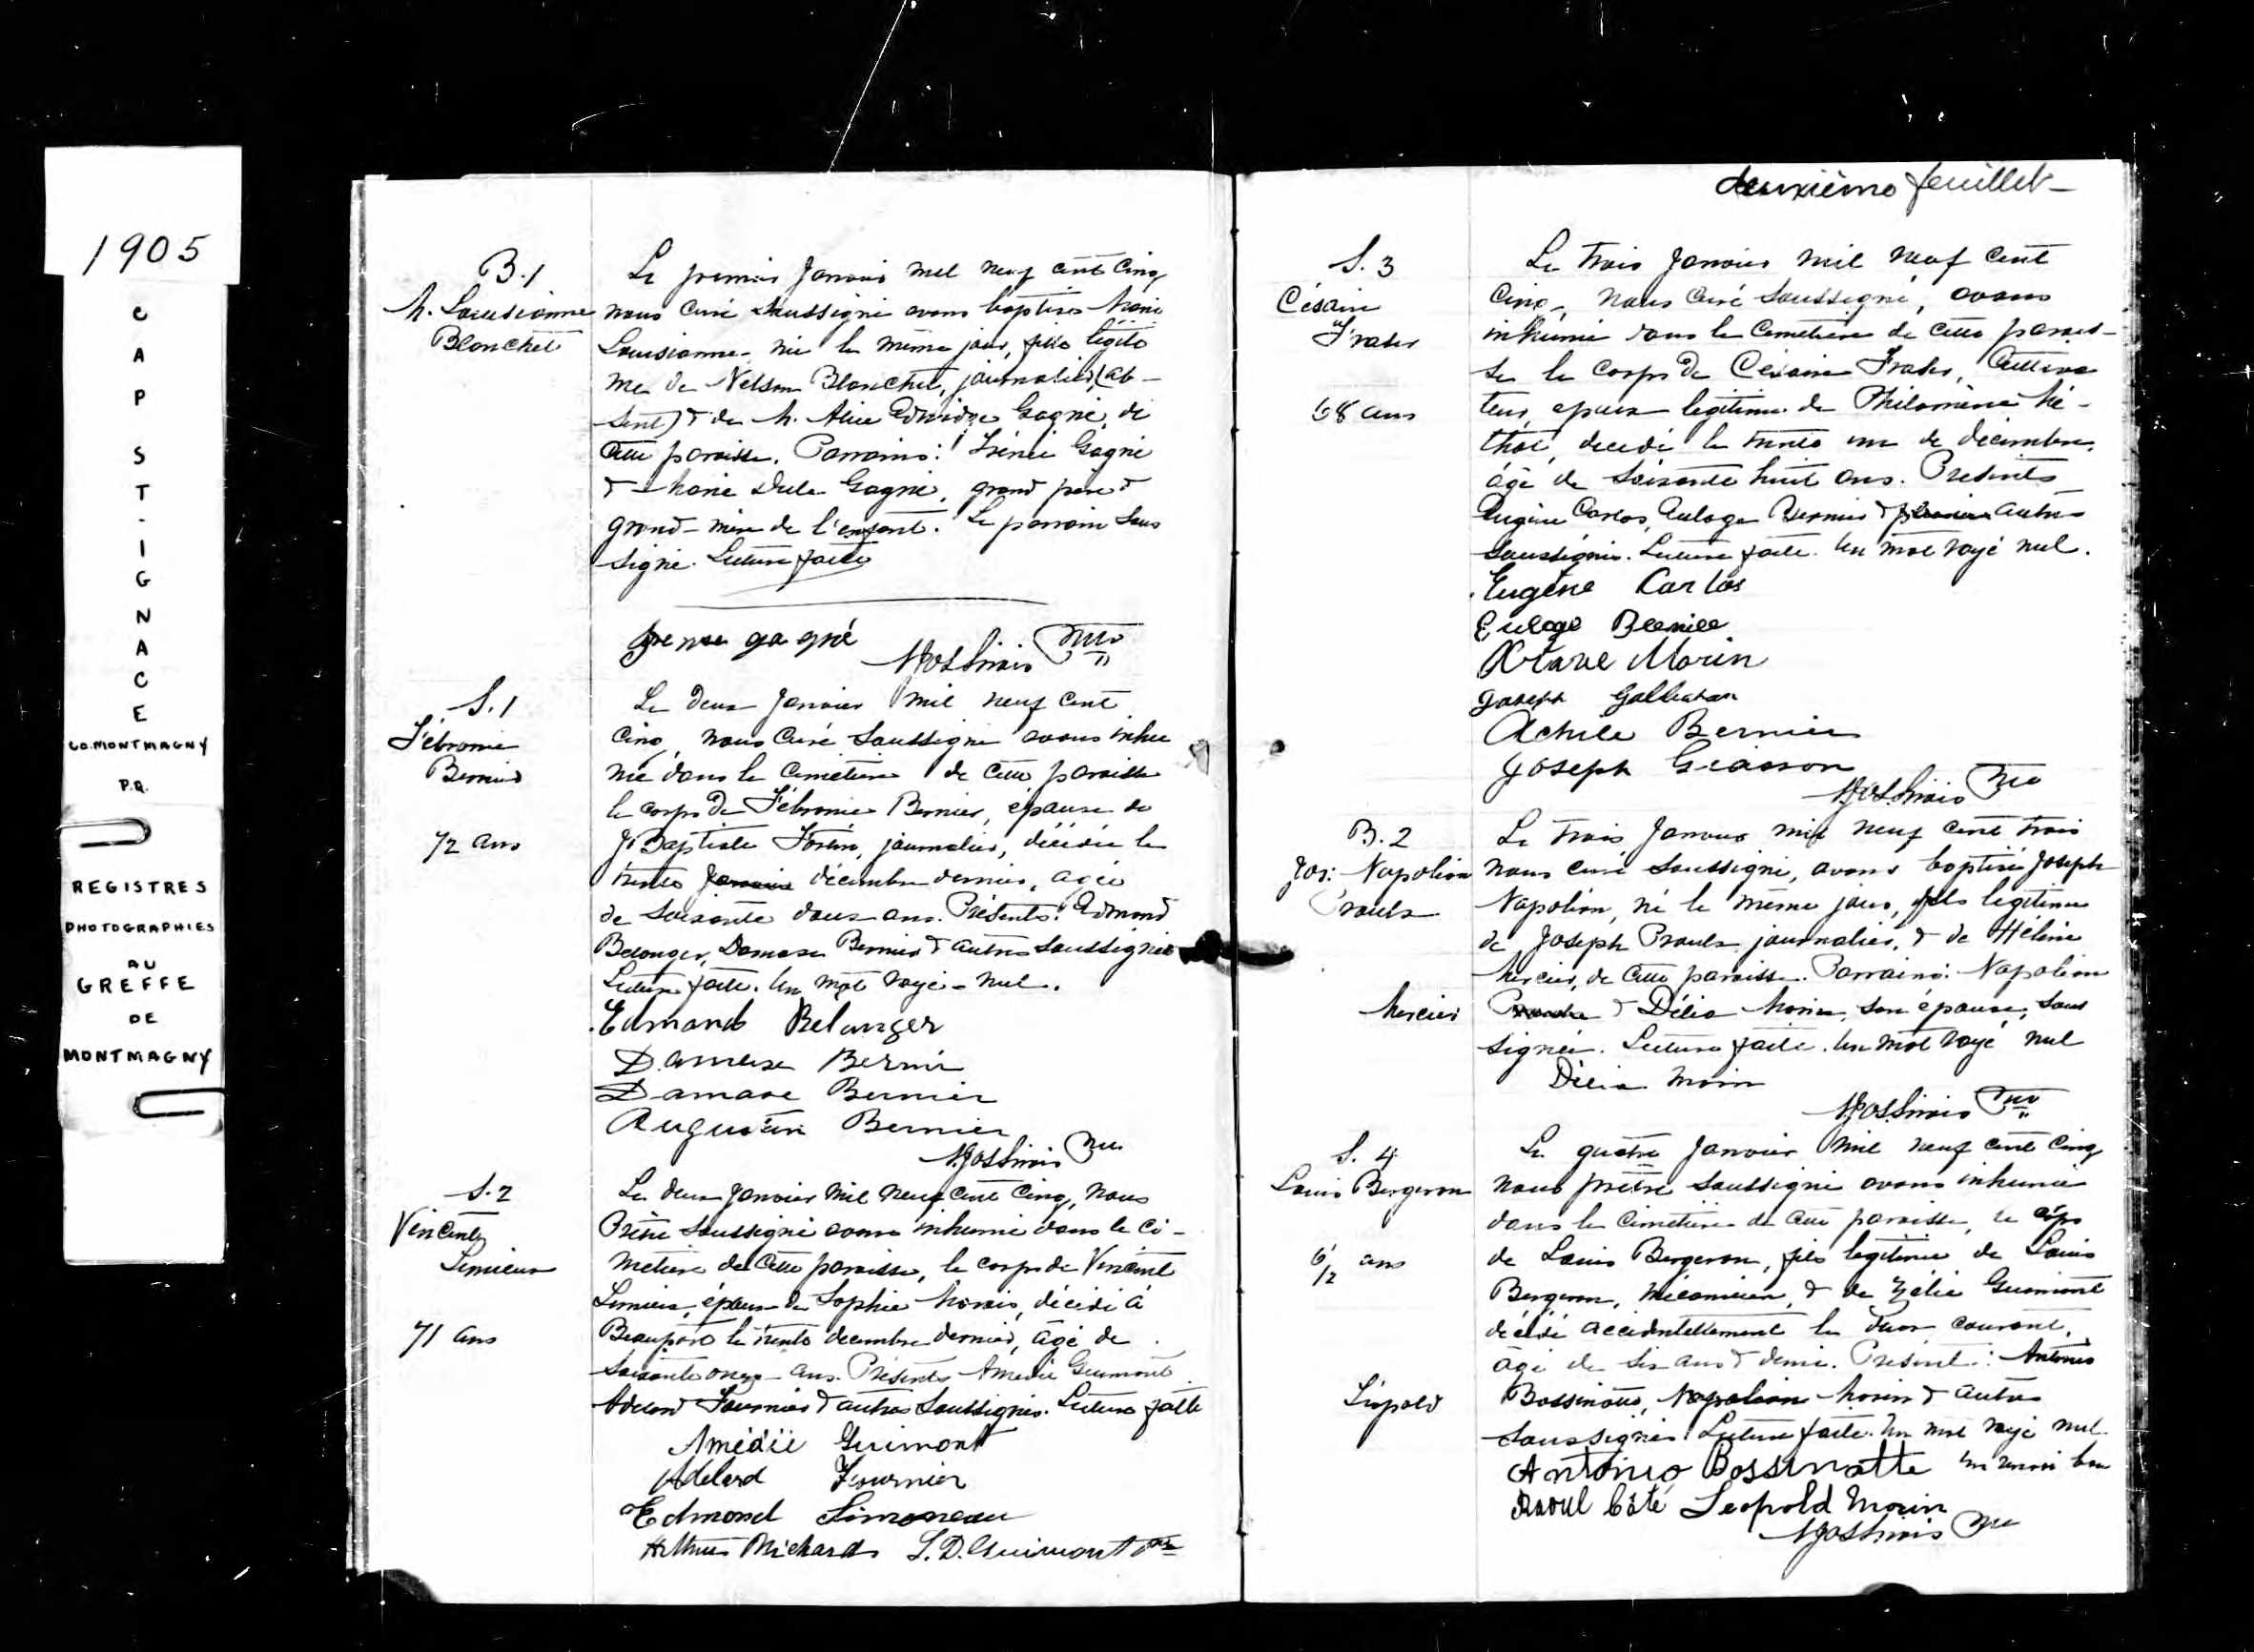 1905
CAP ST-IGNACE
CO. MONTMAGNY
P.Q.
REGISTRES
PHOTOGRAPHIES
AU
GREFFE
DE
MONTMAGNY
B.1
M. Louisianne
Blanchet
Le premier Janvier mil neuf cent cinq
nous curé soussigné avons baptisé Marie
Louisianne, née le même jour, fille légiti
me de Nelson Blanchet, journalier, (ab-
sent) & de M. Alice Edwidge Gagné, de
cette paroisse. Parrains: Irénée Gagné
& Marie Gagné, grand père &
grand-mère de l'enfant. Le parrain sous
signé. Lecture faite
gagné
S.1
Fébronie
Bernier
72 ans
Le deux Janvier mil neuf cent
cinq, nous Curé soussigné avons inhu
mé dans le cimetière de cette paroisse
le corps de Fébronie Bernier, épouse de
J. Baptiste Fortin, journalier, décédée le
trente Janvier décembre dernier, agée
de soixante douze ans. Présents: Edmond
Belanger, Damase Bernier & autres soussignés
Lecture faite. Un mot rayé - nul.
Edmond Belanger
Damase Bernier
Damase Bernier
Augustin Bernier
S.2
Vincent
Lemieux
71 ans
Le deux Janvier mil neuf cent cinq, nous
Prêtre soussigné avons inhumé dans le ci-
metière de cette paroisse, le corps de Vincent
Lemieux, époux de Sophie Morais, décédé à
Beauport le trente decembre dernier, âgé de
soixante onze ans. Présents Amédée Guimont
Adelard Fournier & autres soussignés. Lecture faite
Amédée Guimont
Adelard Fournier
Edmond Simoneau
Arthur Michaud L.D. Guimont ptre
deuxième feuillet
S. 3
Césaire
Frater
68 ans
Le trois Janvier mil neuf cent
cinq, nous Curé soussigné, avons
inhumé dans le cimetière de cette parois-
se le corps de Césaire Frater, Cultiva
teur, époux légitime de Philomène Mé-
thot, decedé le trente un de décembre,
âgé de soixante huit ans. Présents
Eugène Carlos, Euloge Bernier & plusieurs autres
soussignés. Lecture faite. Un mot rayé nul.
Eugène Carlos
Euloge Bernier
Octave Morin
Joseph
Achile Bernier
Joseph Giasson
B. 2
Jos: Napoléon
Proulx
Mercier
Le trois Janvier mil neuf cent trois
nous curé soussigné, avons baptisé Joseph
Napoléon, né le même jour, fils légitime
de Joseph Proulx journalier, & de Hélène
Mercier, de cette paroisse. Parrains: Napoléon
& Délia Morin, son épouse, sous
signée. Lecture faite. Un mot rayé nul
Délia Morin
S. 4
Louis Bergeron
6 1/2 ans
Léopold
Le quatre Janvier mil neuf cent cinq
nous prêtre soussigné avons inhumé
dans le cimetière de cette paroisse, le corps
de Louis Bergeron, fils légitime de Louis
Bergeron, mécanicien, & de Zélie Guimont
décédé accidentellement le deux courant,
âgé de six ans & demi. Présent: Antonio
Bossinotte, Napoléon Morin & autres
soussignés. Lecture faite. Un mot rayé nul.
Antonio Bossinotte
Raoul Côté Leopold Morin